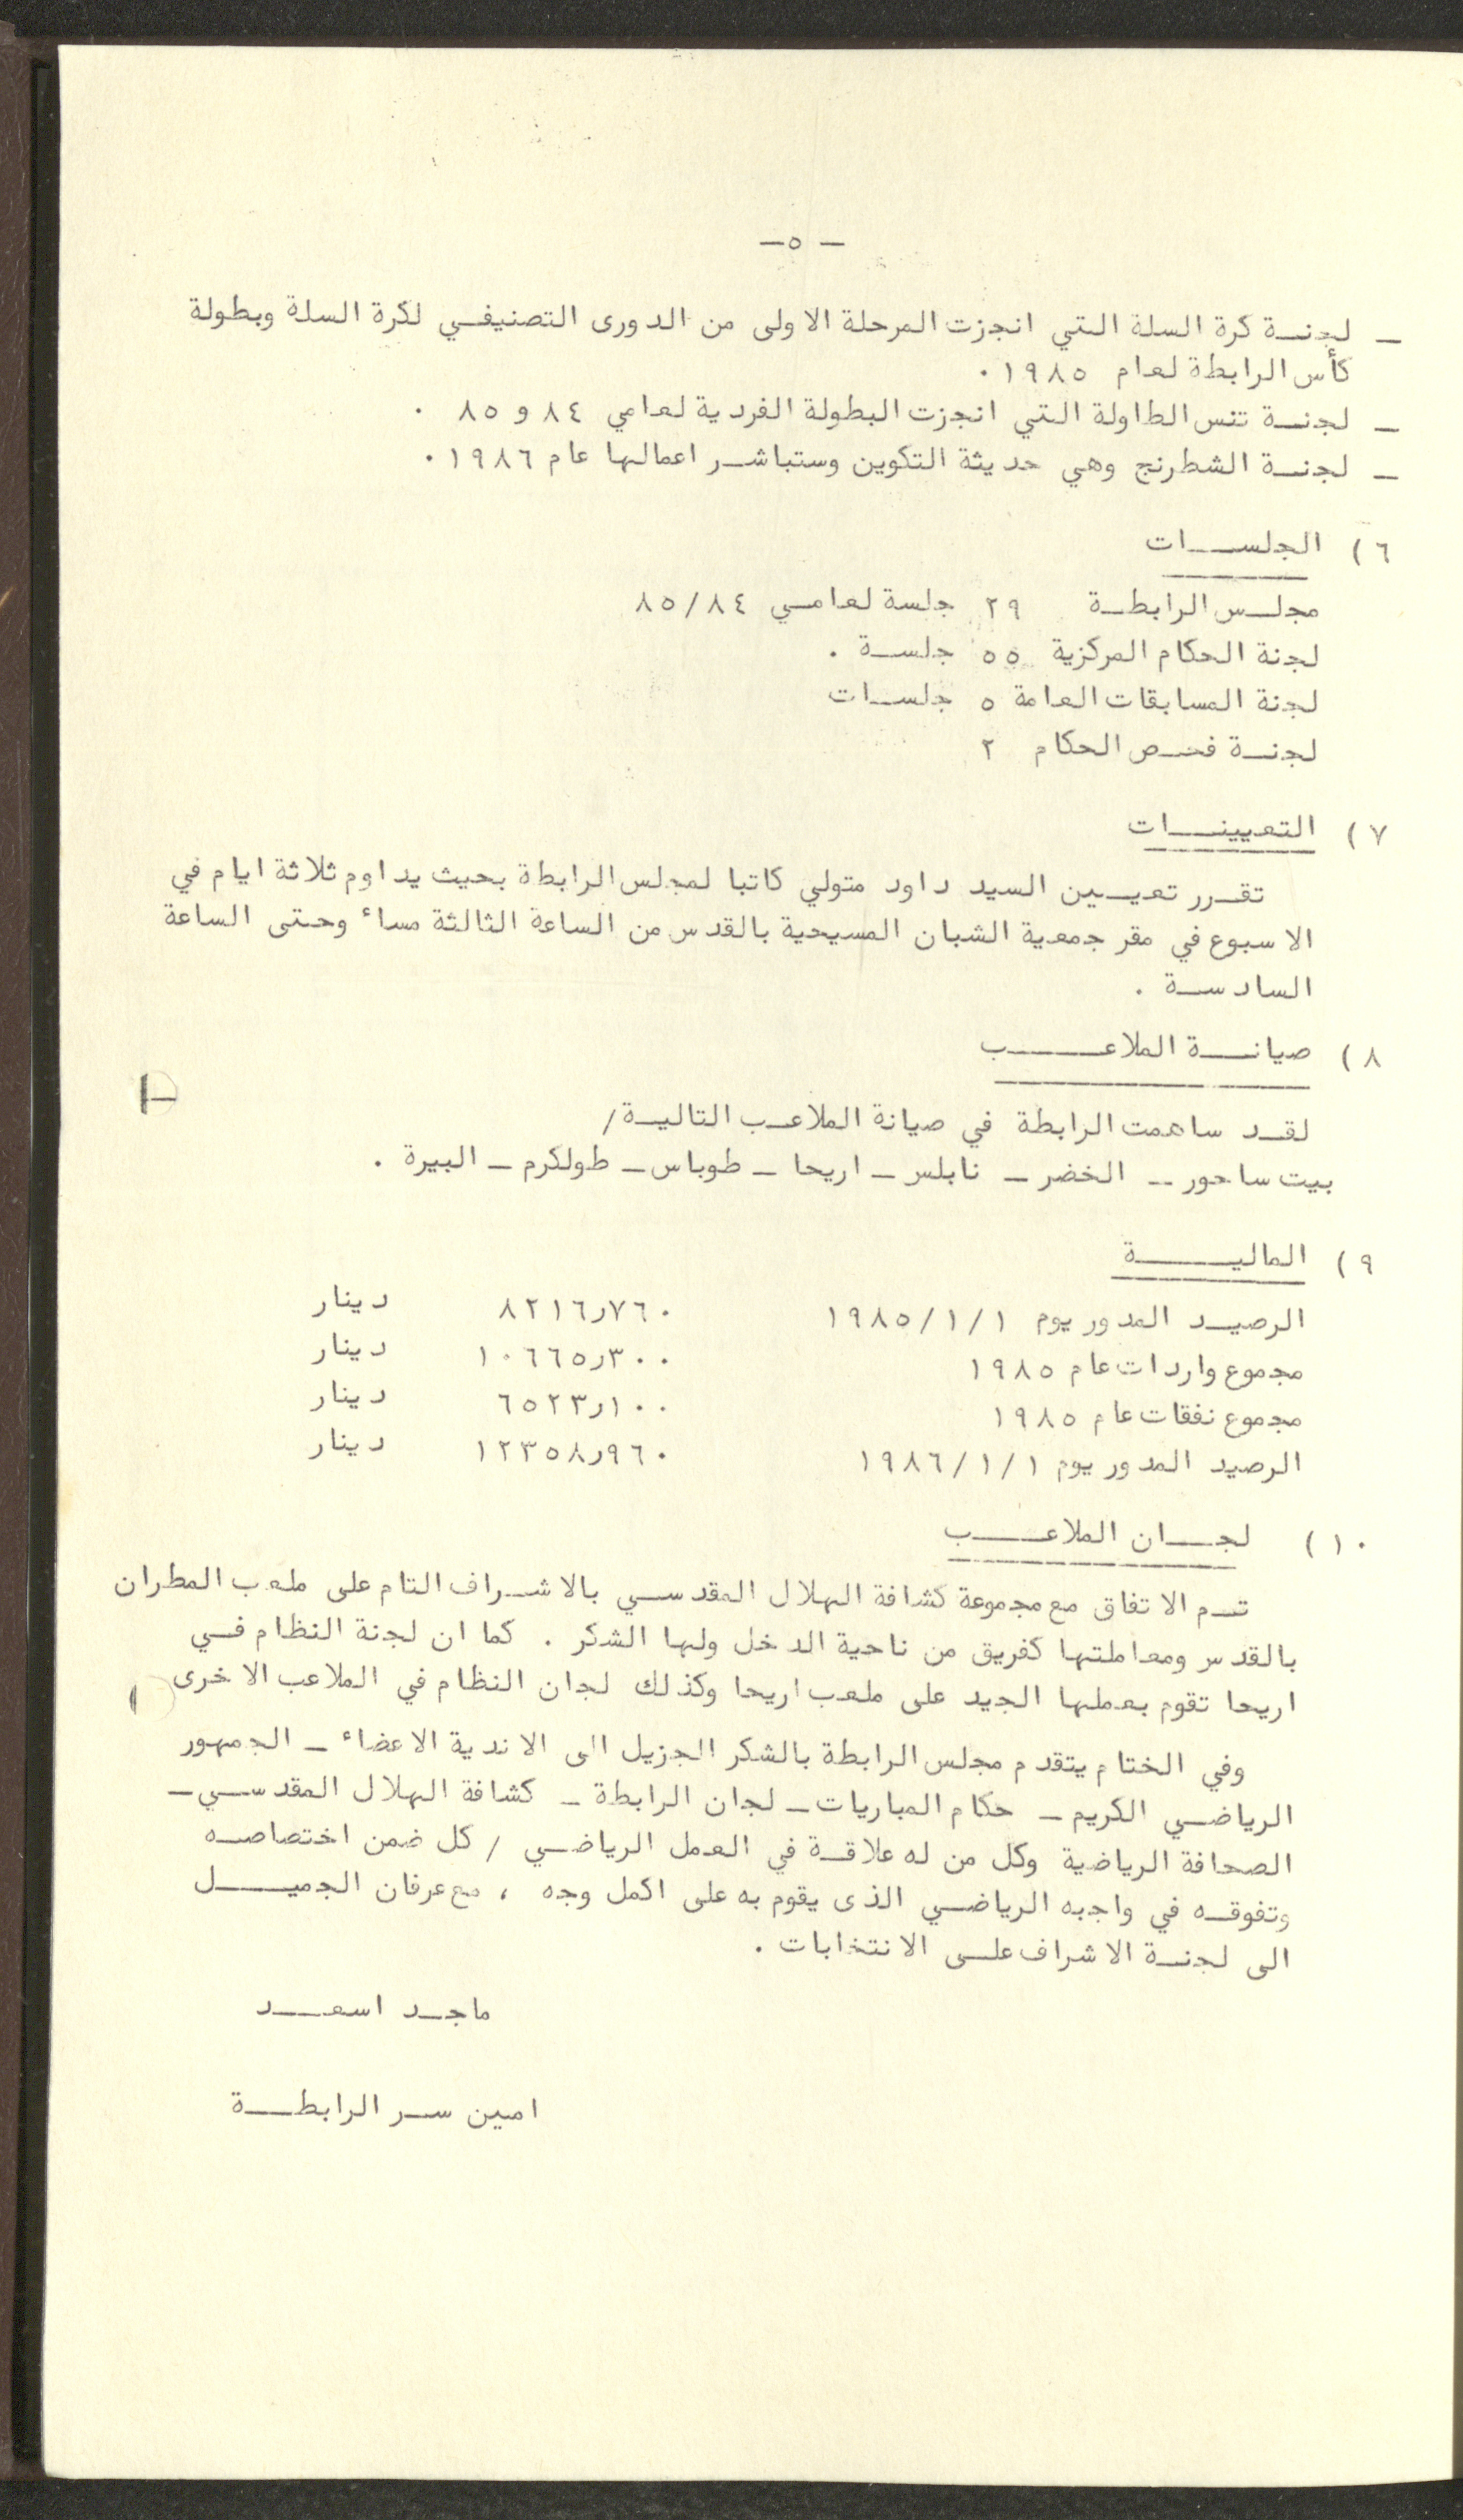 — ٥ —
— لجنة كرة السلة التي انجزت المرحلة الاولى من الدورى التصنيفي لكرة السلة وبطولة
كأس الرابطة لعام ١٩٨٥ ٠
— لجنة تنس الطاولة التي انجزت البطولة الفردية لعامي ٨٤ و ٨٥ ٠
— لجنة الشطرنج وهي حديثة التكوين وستباشر اعمالها عام ١٩٨٦ ٠
٦ ) الجلسات
مجلس الرابطة ٢٩ جلسة لعامي ٨٥/٨٤
لجنة الحكام المركزية ٥٥ جلسة .
لجنة المسابقات العامة ٥ جلسات
لجنة فحص الحكام ٢
٧ ) التعيينات
تقرر تعيين السيد داود متولي كاتبا لمجلس الرابطة بحيث يداوم ثلاثة ايام في
الاسبوع في مقر جمعية الشبان المسيحية بالقدس من الساعة الثالثة مساء وحتى الساعة
السادسة .
٨ ) صيانة الملاعب
لقد ساهمت الرابطة في صيانة الملاعب التالية /
بيت ساحور — الخضر — نابلس — اريحا — طوباس — طولكرم — البيرة .
٩ ) المالية
الرصيد المدور يوم ١٩٨٥/١/١ ٨٢١٦ر٧٦٠ دينار
مجموع واردات عام ١٩٨٥ ١٠٦٦٥ر٣٠٠ دينار
مجموع نفقات عام ١٩٨٥ ٦٥٢٣ر١٠٠ دينار
الرصيد المدور يوم ١٩٨٦/١/١ ١٢٣٥٨ر٩٦٠ دينار
١٠ ) لجان الملاعب
تم الاتفاق مع مجموعة كشافة الهلال المقدسي بالاشراف التام على ملعب المطران
بالقدس ومعاملتها كفريق من ناحية الدخل ولها الشكر . كما ان لجنة النظام في
اريحا تقوم بعملها الجيد على ملعب اريحا وكذلك لجان النظام في الملاعب الاخرى
وفي الختام يتقدم مجلس الرابطة بالشكر الجزيل الى الاندية الاعضاء — الجمهور
الرياضي الكريم — حكام المباريات — لجان الرابطة — كشافة الهلال المقدسي —
الصحافة الرياضية وكل من له علاقة في العمل الرياضي / كل ضمن اختصاصه
وتفوقه في واجبه الرياضي الذى يقوم به على اكمل وجه ، مع عرفان الجميل
الى لجنة الاشراف على الانتخابات .
ماجد اسعد
امين سر الرابطة